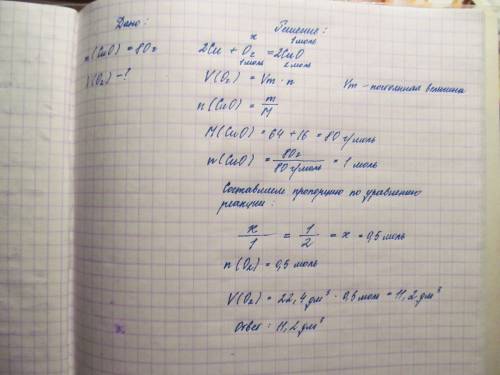 Дано:
m(CuO) = 80 г
V(O₂) - ?
Решение:
x 1 моль
2Cu + O₂ = 2CuO
1 моль 2 моль
V(O₂) = Vm · n Vm - постоянная величина
n(CuO) = m/M
M(CuO) = 64 + 16 = 80 г/моль
m(CuO) = 80 г / 80 г/моль = 1 моль
Составляем пропорцию по уравнению
реакции:
x/1 = 1/2 = x = 0,5 моль
n(O₂) = 0,5 моль
V(O₂) = 22,4 дм³ · 0,5 моль = 11,2 дм³
Ответ: 11,2 дм³